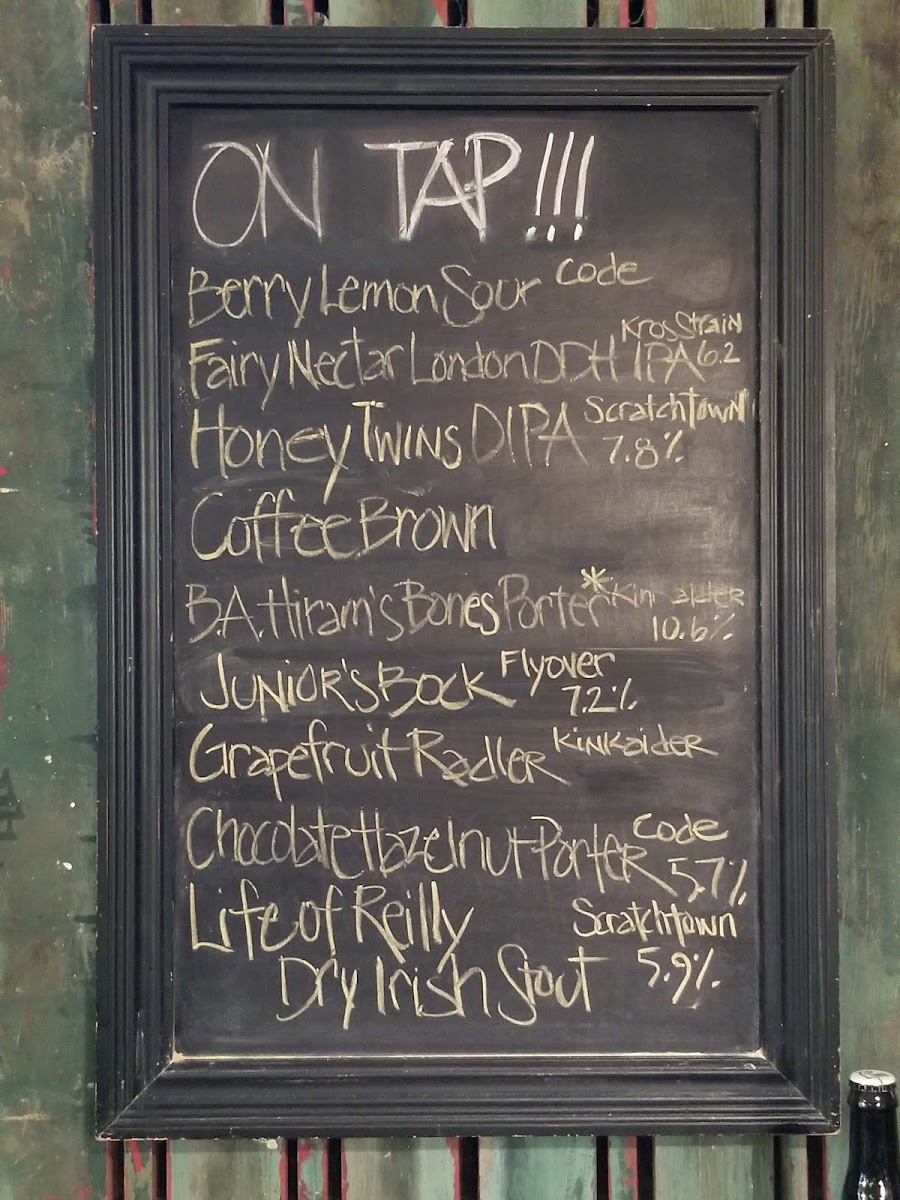 ON TAP!!!
Berry Lemon Sour Code
Fairy Nectar London DDH IPA KrosStrain 6.2
Honey Twins DIPA Scratchtown 7.8%
Coffee Brown
B.A. Hiram's Bones Porter* Kinkaider 10.6%
Junior's Bock Flyover 7.2%
Grapefruit Radler Kinkaider
Chocolate Hazelnut Porter Code 5.7%
Life of Reilly Scratchtown
Dry Irish Stout 5.9%